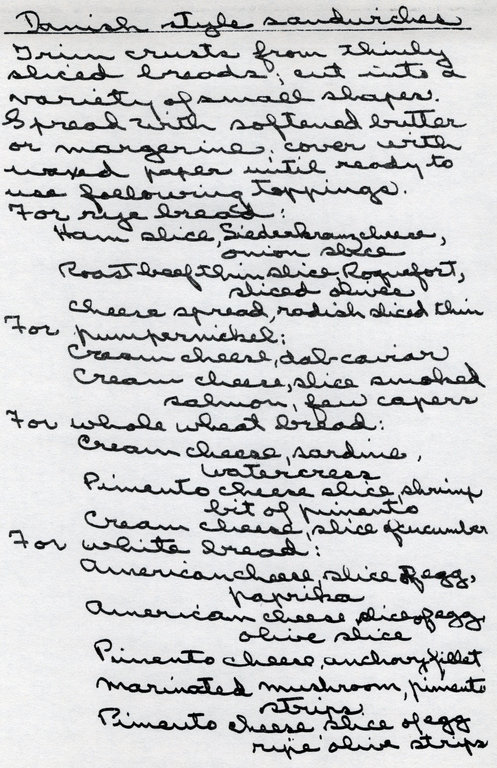 Danish style sandwiches
Trim crusts from thinly
sliced breads; cut into a
variety of small shapes.
Spread with softened butter
or margerine, cover with
waxed paper until ready to
use following toppings.
For rye bread:
Ham slice, Siederkranz cheese,
onion slice
Roast beef thin slice, Roquefort,
sliced olives
cheese spread, radish sliced thin
For pumpernickel:
Cream cheese, dab caviar
Cream cheese, slice smoked
salmon, few capers
For whole wheat bread:
Cream cheese, sardine,
watercress
Pimento cheese slice, shrimp
bit of pimento
Cream cheese, slice of cucumber
For white bread:
American cheese, slice of egg,
paprika
American cheese, slice of egg,
olive slice
Pimento cheese, anchovy fillet
marinated mushroom, pimento
strips
Pimento cheese slice of egg
ripe olive strips